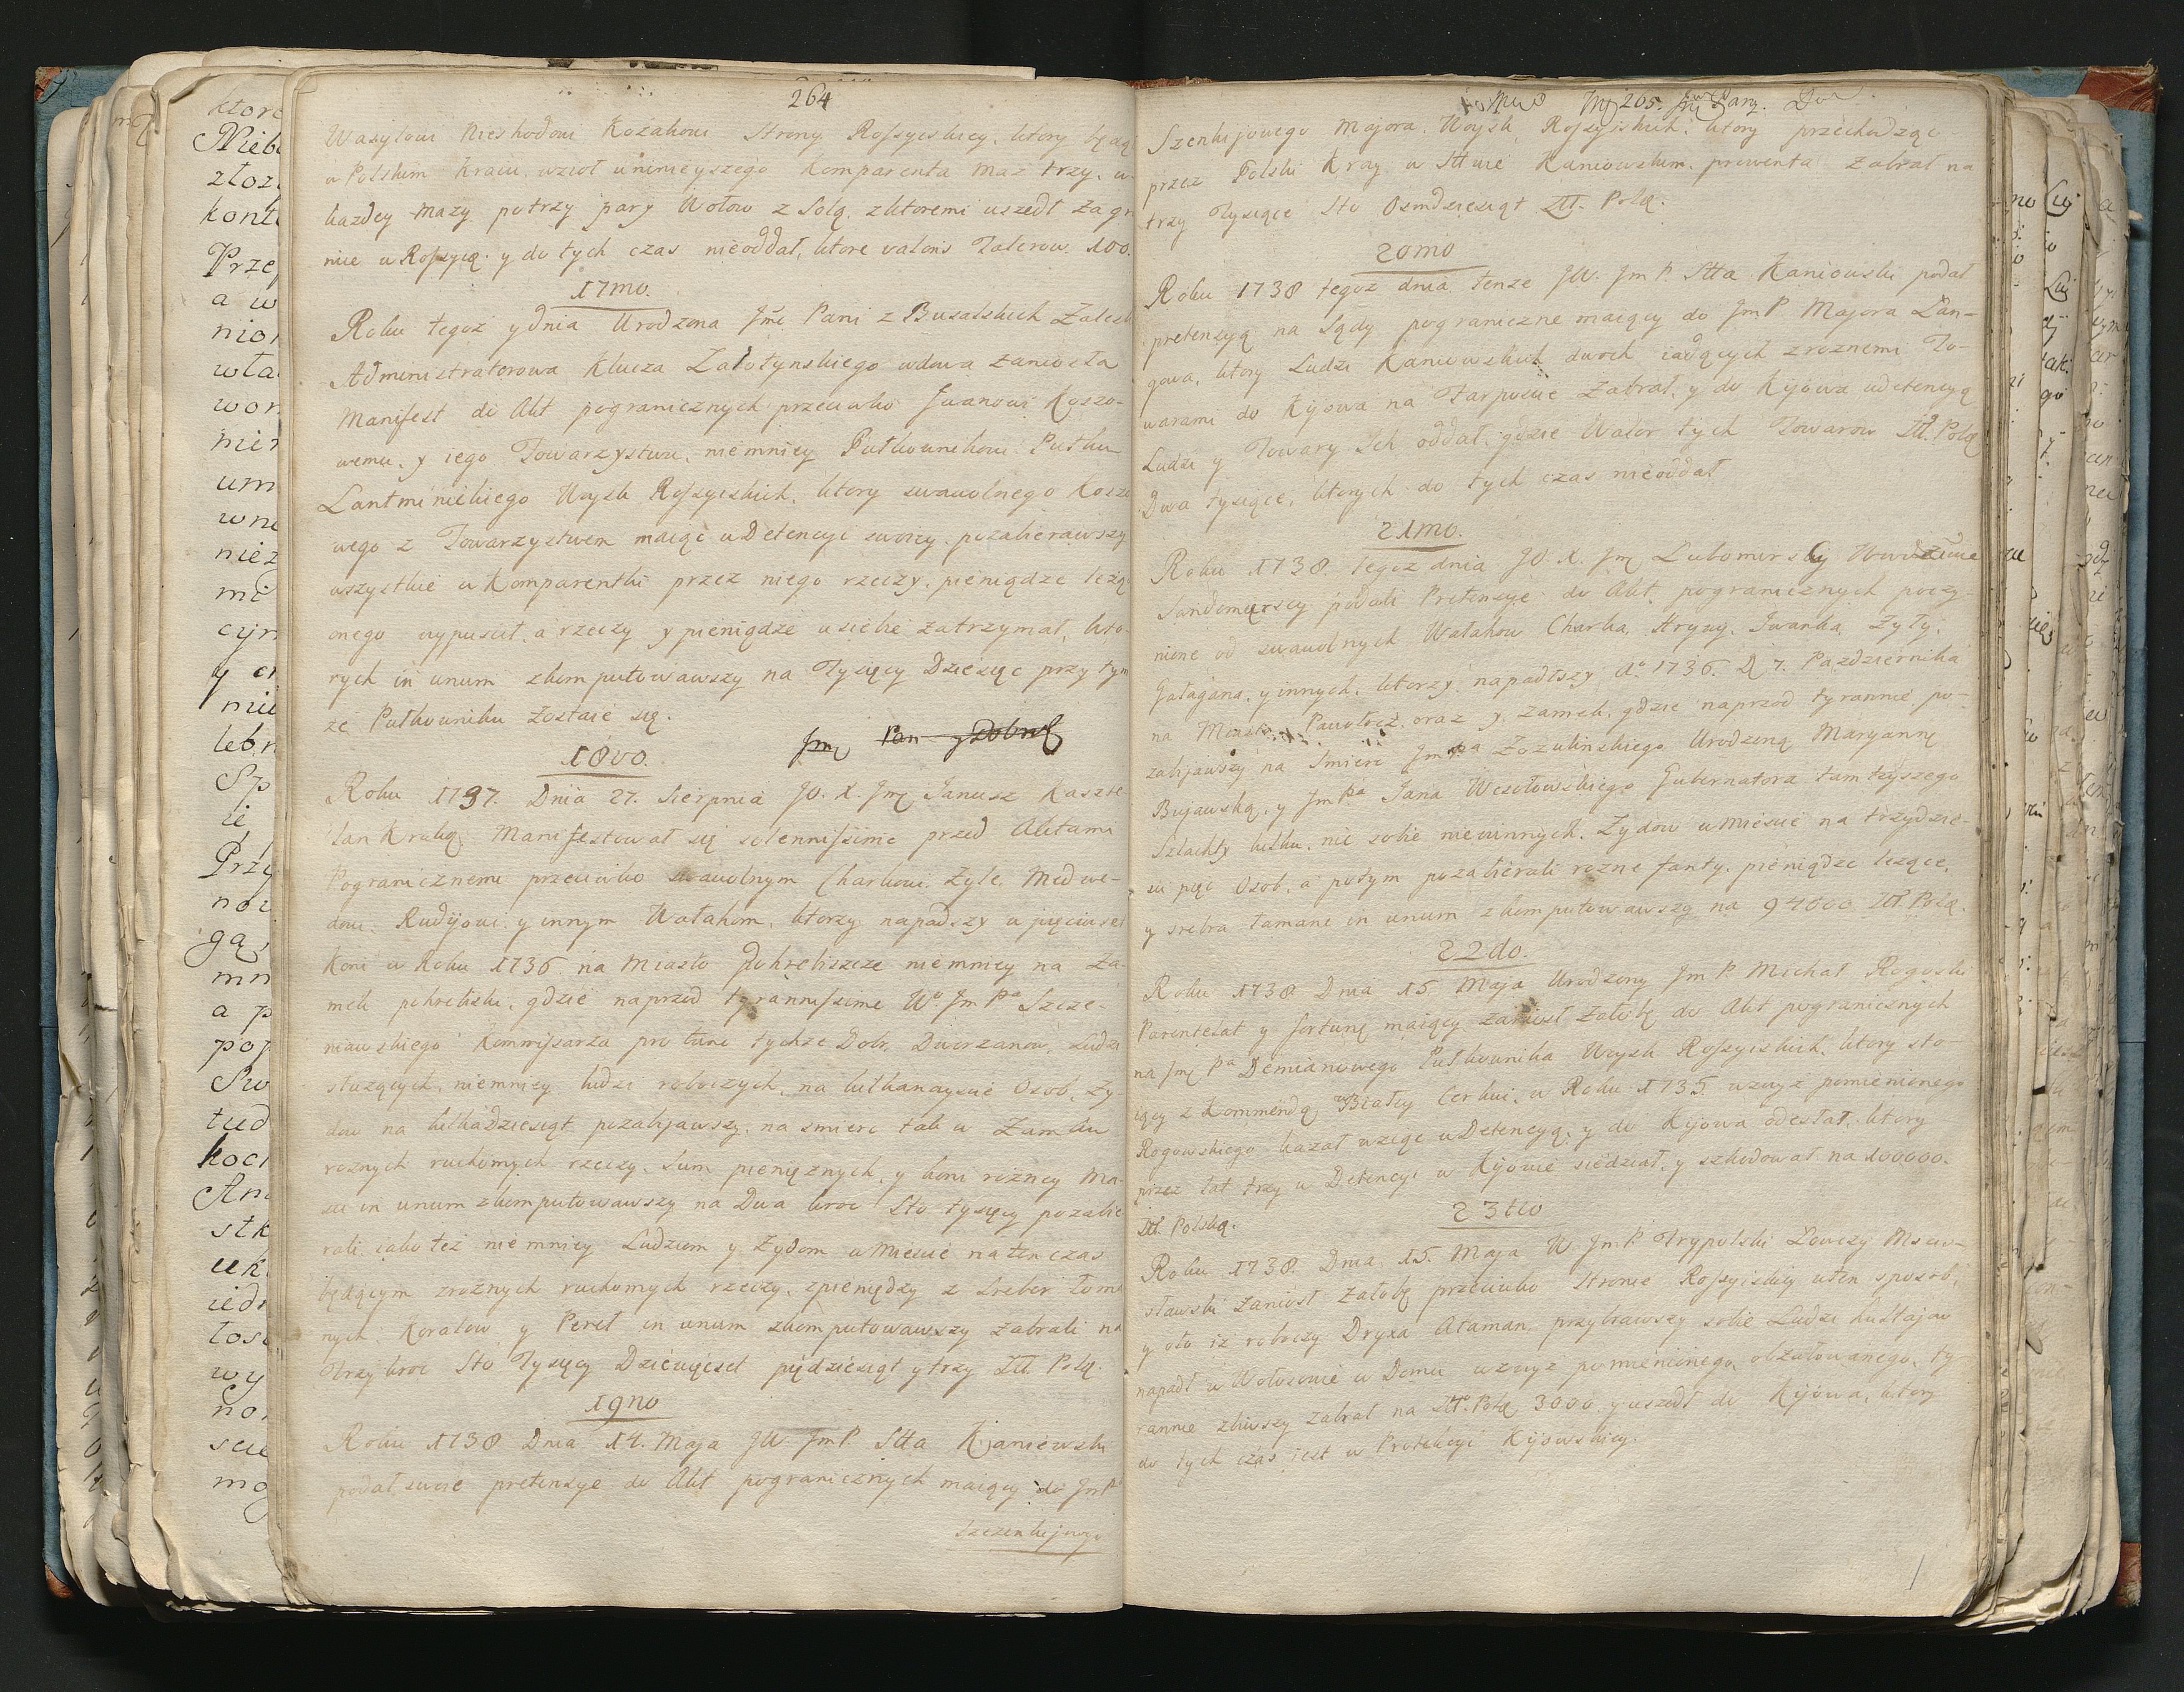 264
Wasylowi Nieshodowi Kozakowi Strony Rossyiskiey, ktory będąc
w Polskim Kraiu, wzioł u ninieyszego Komparenta maz trzy, u
kazdey mazy potrzy pary Wołow z Solą, z ktoremi uszedł za gra
nice w Rossyią y do tych czas nieoddał, ktore valoris Talerow 100.
17mo.
Roku tegoż y dnia Urodzona Jmć Pani z Busalskich Zalesk
Administratorowa Klucza wdowa zaniosła
Manifest do Akt pogranicznych przeciwko Iwanowi Koszo-
wemu, y iego Towarzystwu, niemniey Pułkownikowi Pułku
Lantminickiego Woysk Rossyiskich, ktory swawolnego Koszo
wego z Towarzystwem maiąc w Detencyi swoiey, pozabierawszy
wszystkie u Komparentki przez niego rzeczy, pieniądze leżą
onego wypuscił, a rzeczy y pieniądze u siebie zatrzymał, kto-
rych in unum zkomputowawszy na Tysięcy Dziesięc przy tym
że Pułkowniku zostaie się.
18vo.
Roku 1737. Dnia 27. Sierpnia JO. X. Jmę Janusz Kaszte
lan Krakę Manifestował się solennissime przed Aktami
Pogranicznemi przeciwko swawolnym Charkowi, Zyle, Medwe-
dowi, Rudijowi, y innym Watahom, ktorzy napadszy w pięciuset
Koni w Roku 1736 na Miasto Pohrebiszcze niemniey na Za-
mek pohrebiski, gdzie naprzod tyrannissime Wo Jm Pa Szcze-
niowskiego Kommissarza pro tunc tychże Dobr, Dworzanow, Ludzi
służących, niemniey ludzi roboczych, na kilkanayscie Osob, Zy-
dow na kilkadziesiąt pozabijawszy, na smierc tak w Zamku
roznych ruchomych rzeczy, Sum pienięznych, y koni rożney Ma-
sci in unum zkomputowawszy na Dwa kroc Sto tysięcy pozabie
rali, iako też niemniey Ludziom y Zydom w Miescie na ten czas
będącym zrożnych ruchomych rzeczy, zpieniędzy z Sreber Łama
nych, Koralow y Pereł in unum zkomputowawszy zabrali na
Trzykroc Sto Tysięcy Dziewięcset pędziesiąt y trzy Złł. Polę.
19no
Roku 1738 Dnia 14. Maja JW JmP. Stta Kaniewski
podał swoie pretensye do Akt pogranicznych maiący do JmPa
Szezenkijowego
265.
Szenkijowego Majora Woysk Rossyiskich, ktory przechodząc
przez Polski Kray w Sttwie Kaniowskim, prowenta zabrał na
trzy Tysiące Sto Osmdziesiąt Złł. Polę.
20mo
Roku 1738 tegoż dnia tenze JW. Jm P Stta Kaniowski podał
pretensyą na Sądy pograniczne maiący do Jm P Majora Lan-
gowa, ktory Ludzi Kaniowskich dwoch iadących z roznemi To-
warami do Kijowa na Farpocie zabrał, y do Kijowa w detencyą
Ludzi y Towary Ich oddał, gdzie Walor tych Towarow Złł. Polę
Dwa tysiące, ktorych do tych czas nieoddał
21mo.
Roku 1738. tegoż dnia JO. X. Jmę Lubomirscy
Sandomirscy podali Pretensye do Akt pogranicznych poczy-
nione od swawolnych Watahow Charka, Hrywy, Iwanka, Zyły,
Gałagana, y innych, ktorzy napadłszy Ao 1736. D. 7. Pazdziernika
na Miasto Pawołocz, oraz y zamek, gdzie naprzod tyrannie po-
zabijawszy na Smierc Jm Pa Zozulinskiego Urodzoną Maryannę
Bujawską, y Jm Pa Jana Wesołowskiego Gubernatora tamteyszego
Szlachty kilku, nic sobie niewinnych, Zydow w Miescie na trzydzie-
sci pięc Osob, a potym pozabierali rozne fanty, pieniądze leżące,
y srebra łamane in unum zkomputowawszy na 94000 Złł. Polę.
22do.
Roku 1738 Dnia 15 Maja Urodzony Jm P. Michał Rogoski
Parentelat y fortunę maiący zaniosł załobę do Akt pogranicznych
na Jmę Pa Demianowego Pułkownika Woysk Rossyiskich, ktory sto-
iący z Kommendą w Białey Cerkwi, w Roku 1735. wzwyz pomienionego
Rogowskiego kazał wziąc w Detencyą, y do Kijowa odesłał, ktory
przez lat trzy w Detencyi w Kijowie siedział, y szkodował na 100000.
Złł. Polskę.
23tio
Roku 1738. Dnia 15. Maja W JmP Trypolski Łowczy Mscis-
sławski zaniosł załobę przeciwko Stronie Rossyiskiey w ten sposob,
y oto iz roboczy Dryxa Ataman, przybrawszy sobie Ludzi hułtajow
napadł w Wołosowie w Domu wzwyż pomienionego obżałowanego, ty
rannie zbiwszy zabrał na Złł. Polę 3000. y uszedł do Kijowa, ktory
do tych czas iest w Protekcyi Kijowskiey.